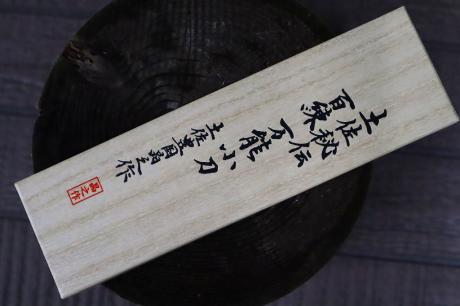 土佐秘伝
百錬 万能小刀
土佐豊国晶之作
晶之作